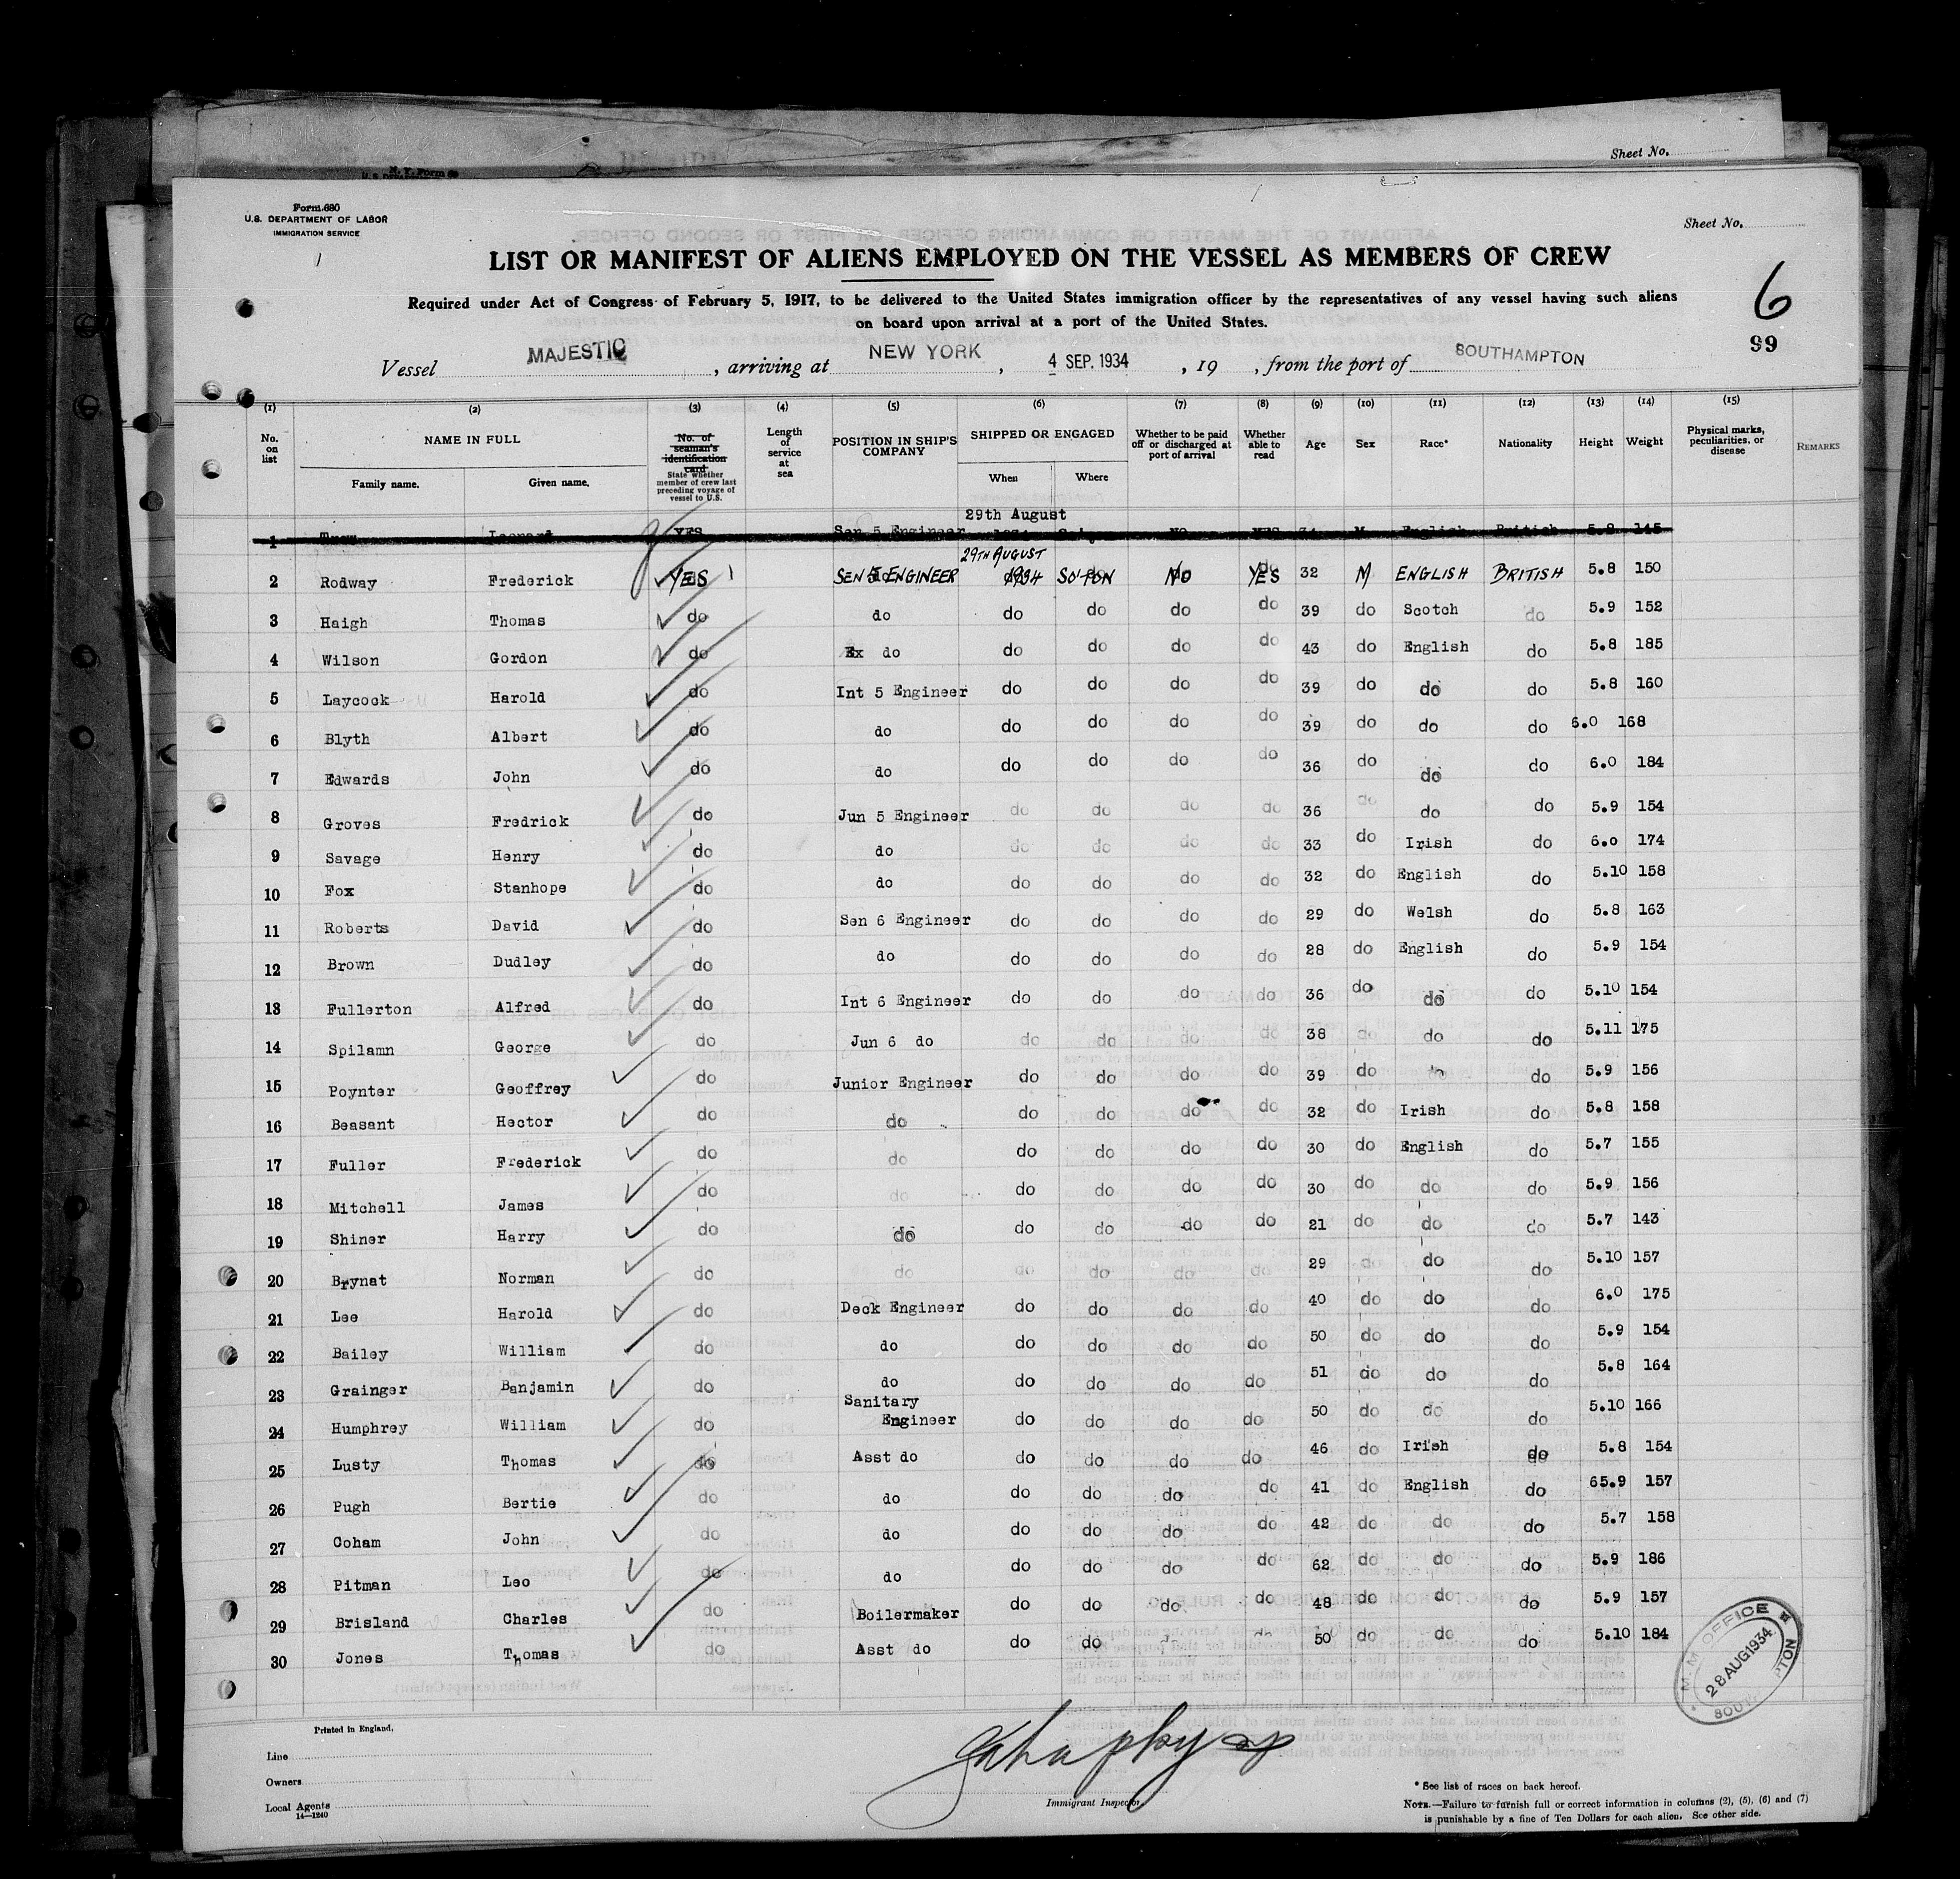 Sheet No.
Form 680
U.S. DEPARTMENT OF LABOR
IMMIGRATION SERVICE
Sheet No.
LIST OR MANIFEST OF ALIENS EMPLOYED ON THE VESSEL AS MEMBERS OF CREW
Required under Act of Congress of February 5, 1917, to be delivered to the United States immigration officer by the representatives of any vessel having such aliens
on board upon arrival at a port of the United States.
6
99
Vessel MAJESTIC, arriving at NEW YORK, 4 SEP. 1934, 19 , from the port of SOUTHAMPTON
(1) (2) (3) (4) (5) (6) (7) (8) (9) (10) (11) (12) (13) (14) (15)
No. on list NAME IN FULL Family name. Given name. No. of seaman's identification card State whether member of crew last preceding voyage of vessel to U.S. Length of service at sea POSITION IN SHIP'S COMPANY SHIPPED OR ENGAGED When Where Whether to be paid off or discharged at port of arrival Whether able to read Age Sex Race* Nationality Height Weight Physical marks, peculiarities, or disease REMARKS
29th August
1 Leonard YES Sen 5 Engineer 1934 NO YES 34 M English British 5.8 145
29TH AUGUST
2 Rodway Frederick YES SEN 5 ENGINEER 1934 SO'TON NO YES 32 M ENGLISH BRITISH 5.8 150
3 Haigh Thomas do do do do do do 39 do Scotch do 5.9 152
4 Wilson Gordon do Ex do do do do do 43 do English do 5.8 185
5 Laycock Harold do Int 5 Engineer do do do do 39 do do do 5.8 160
6 Blyth Albert do do do do do do 39 do do do 6.0 168
7 Edwards John do do do do do do 36 do do do 6.0 184
8 Groves Fredrick do Jun 5 Engineer do do do do 36 do do do 5.9 154
9 Savage Henry do do do do do do 33 do Irish do 6.0 174
10 Fox Stanhope do do do do do do 32 do English do 5.10 158
11 Roberts David do Sen 6 Engineer do do do do 29 do Welsh do 5.8 163
12 Brown Dudley do do do do do do 28 do English do 5.9 154
13 Fullerton Alfred do Int 6 Engineer do do do do 36 do do do 5.10 154
14 Spilamn George do Jun 6 do do do do do 38 do do do 5.11 175
15 Poynter Geoffrey do Junior Engineer do do do do 39 do do do 5.9 156
16 Beasant Hector do do do do do do 32 do Irish do 5.8 158
17 Fuller Frederick do do do do do do 30 do English do 5.7 155
18 Mitchell James do do do do do do 30 do do do 5.9 156
19 Shiner Harry do do do do do do 21 do do do 5.7 143
20 Brynat Norman do do do do do do 29 do do do 5.10 157
21 Lee Harold do Deck Engineer do do do do 40 do do do 6.0 175
22 Bailey William do do do do do do 50 do do do 5.9 154
23 Grainger Banjamin do do do do do do 51 do do do 5.8 164
24 Humphrey William do Sanitary Engineer do do do do 50 do do do 5.10 166
25 Lusty Thomas do Asst do do do do do 46 do Irish do 5.8 154
26 Pugh Bertie do do do do do do 41 do English do 65.9 157
27 Coham John do do do do do do 42 do do do 5.7 158
28 Pitman Leo do do do do do do 62 do do do 5.9 186
29 Brisland Charles do Boilermaker do do do do 48 do do do 5.9 157
30 Jones Thomas do Asst do do do do do 50 do do do 5.10 184
M.M. OFFICE
28 AUG 1934
Printed in England.
Line
Owners
Local Agents
14—1240
Immigrant Inspector.
* See list of races on back hereof.
NOTE.—Failure to furnish full or correct information in columns (2), (5), (6) and (7)
is punishable by a fine of Ten Dollars for each alien. See other side.